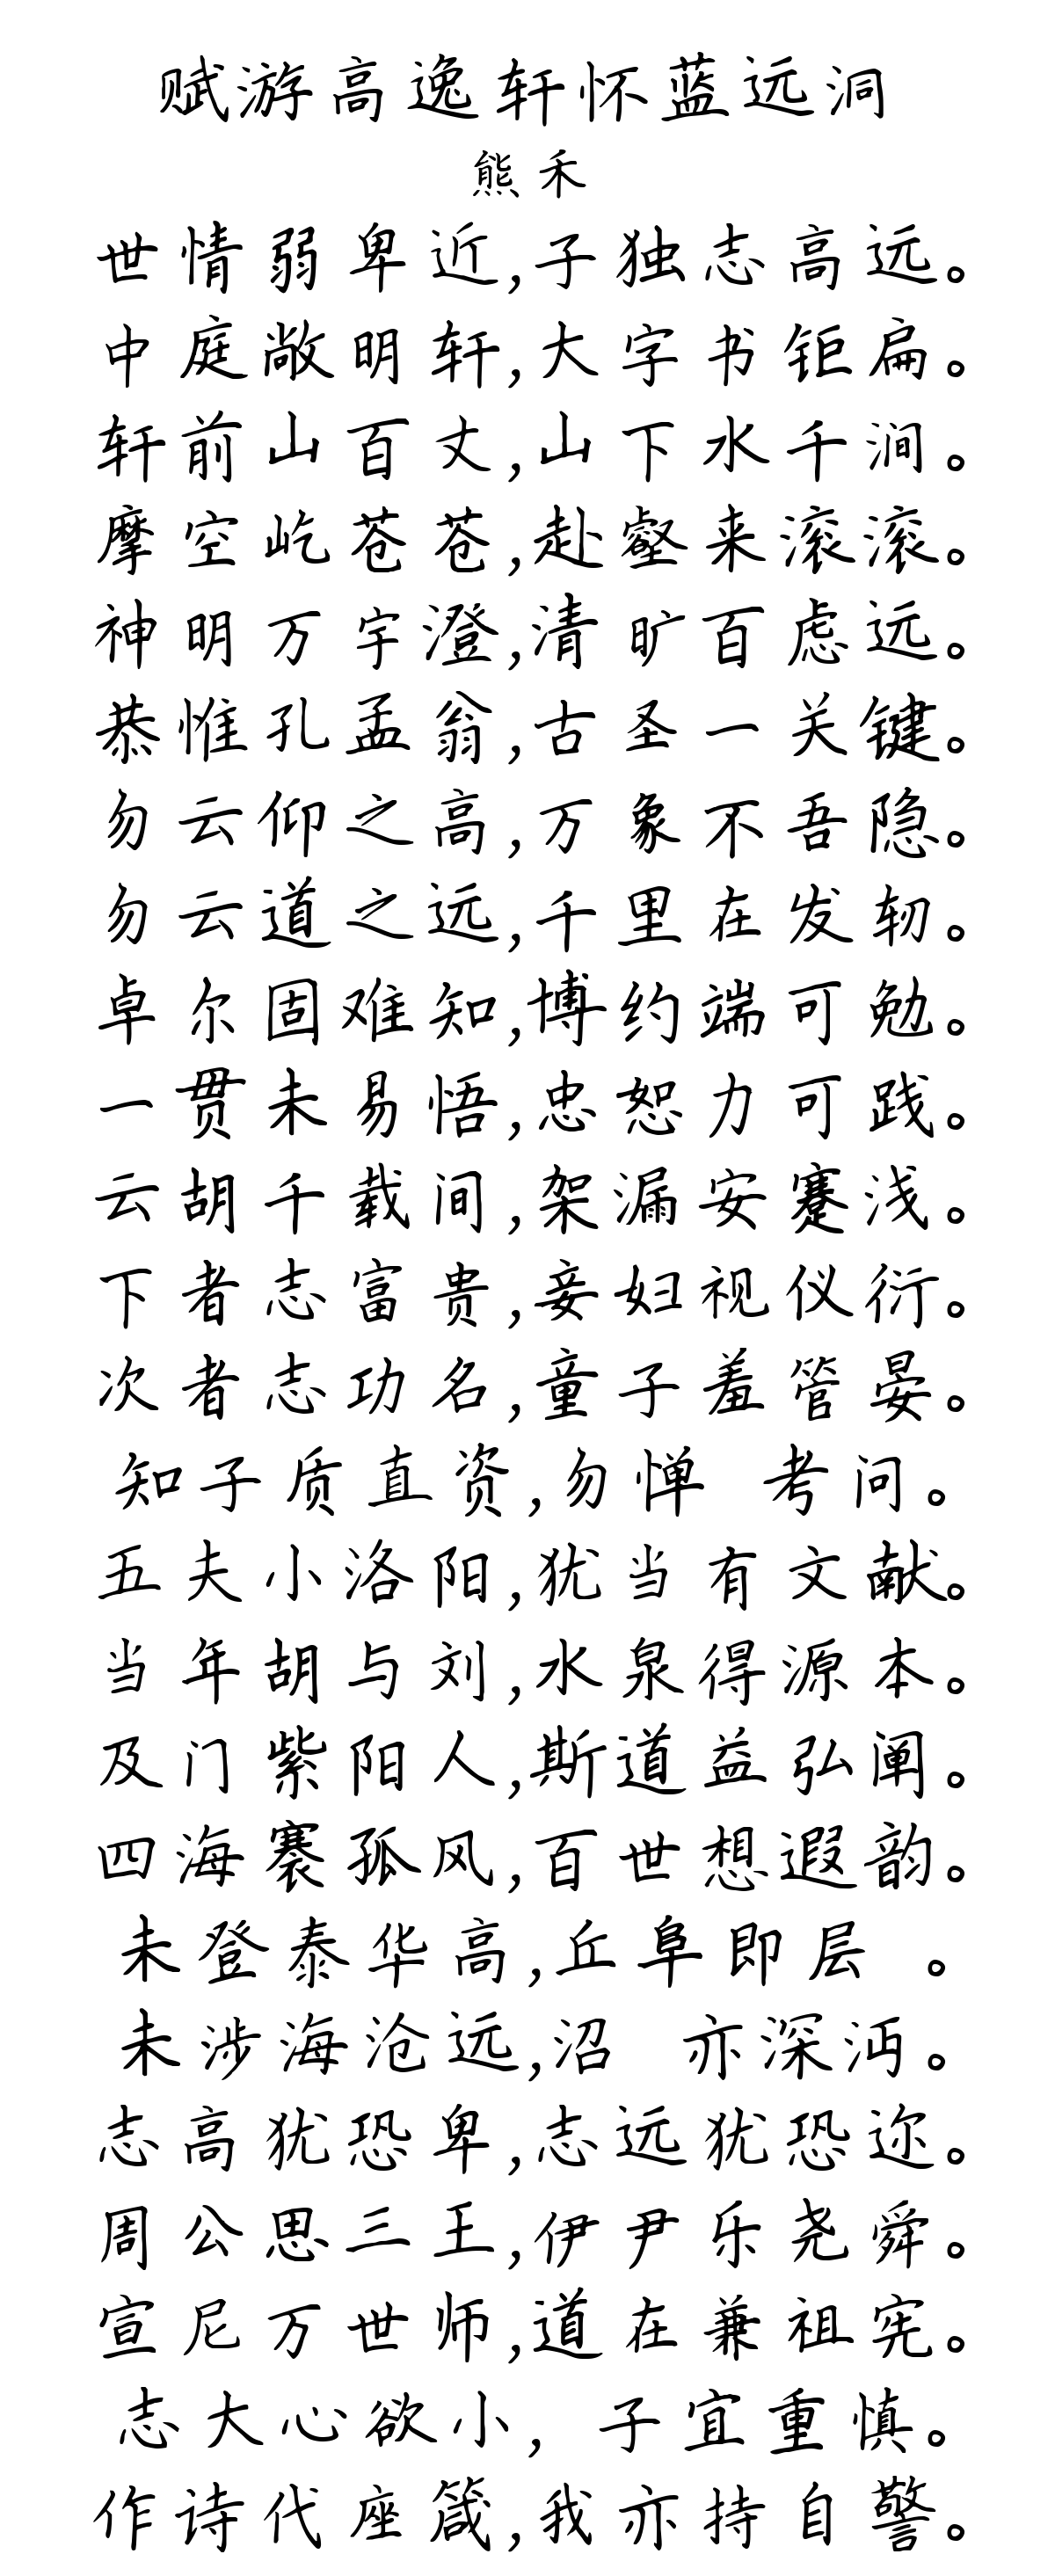 赋游高逸轩怀蓝远洞
熊禾
世情弱卑近,子独志高远。
中庭敞明轩,大字书钜扁。
轩前山百丈,山下水千涧。
摩空屹苍苍,赴壑来滚滚。
神明万宇澄,清旷百虑远。
恭惟孔孟翁,古圣一关键。
勿云仰之高,万象不吾隐。
勿云道之远,千里在发轫。
卓尔固难知,博约端可勉。
一贯未易悟,忠恕力可践。
云胡千载间,架漏安蹇浅。
下者志富贵,妾妇视仪衍。
次者志功名,童子羞管晏。
知子质直资,勿惮 考问。
五夫小洛阳,犹当有文献。
当年胡与刘,水泉得源本。
及门紫阳人,斯道益弘阐。
四海褰孤风,百世想遐韵。
未登泰华高,丘阜即层 。
未涉海沧远,沼 亦深沔。
志高犹恐卑,志远犹恐迩。
周公思三王,伊尹乐尧舜。
宣尼万世师,道在兼祖宪。
志大心欲小, 子宜重慎。
作诗代座箴,我亦持自警。